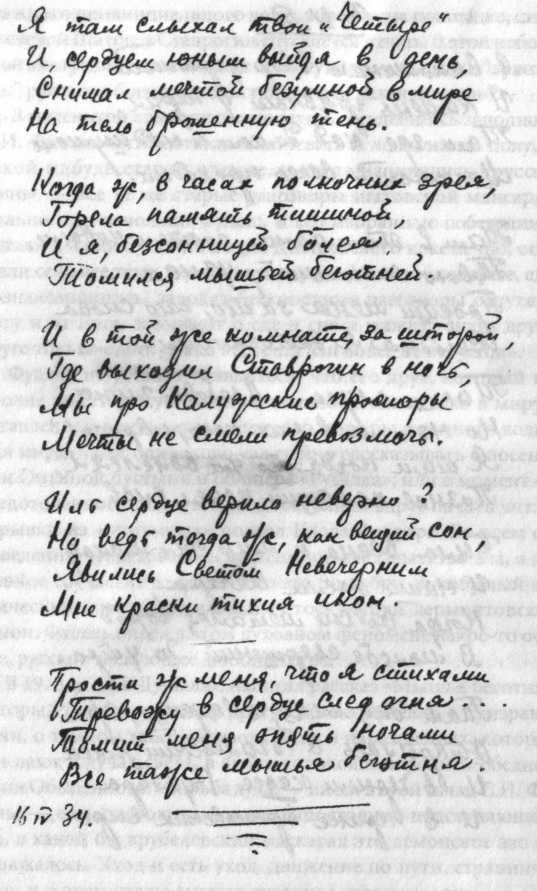 Я там слыхал твои „Четыре“
И, сердцем юным выйдя в день,
Снимал мечтой безумной в мире
На тело брошенную тень.
Когда ж в часах полночных зрея,
Горела память тишиной,
И я, безсонницей болея,
Томился мышьей беготней.
И в той же комнате, за шторой,
Где выходил Ставрогин в ночь,
Мы про Калужские просторы
Мечты не смели превозмочь.
Иль сердце верило неверно?
Но ведь тогда ж, как вещий сон,
Явились Светом Невечерним
Мне краски тихия икон.
Прости ж меня, что я стихами
Тревожу в сердце след огня...
Томит меня опять ночами
Все таже мышья беготня.
16 IV 34.